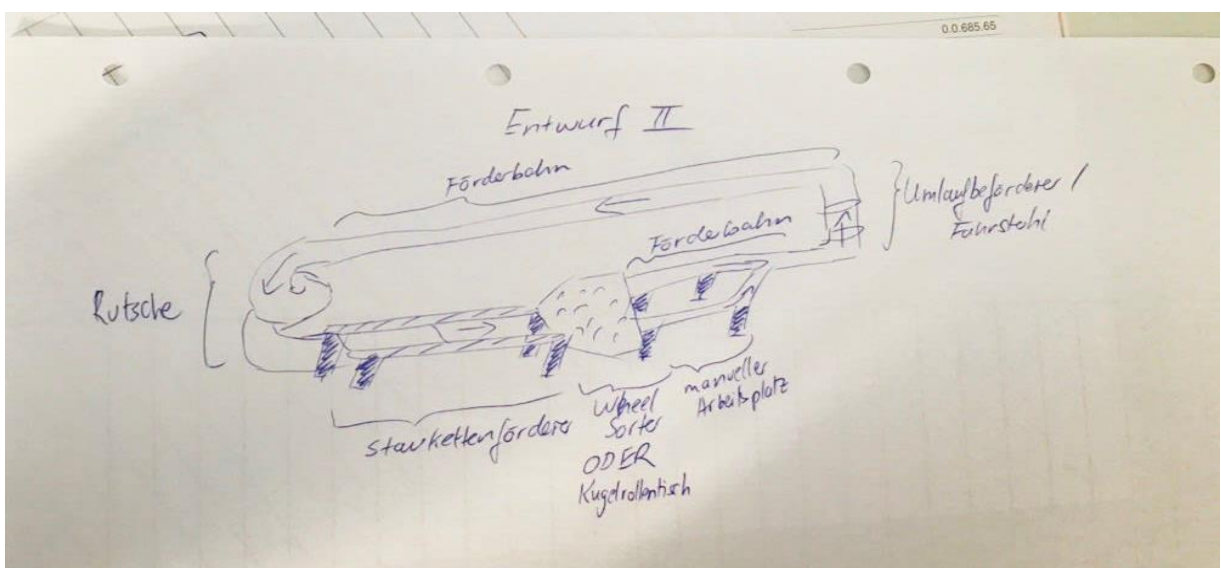 0.0.685.65
Entwurf II
Förderbahn
Umlaufbeförderer /
Fahrstuhl
Förderbahn
Rutsche
Staukettenförderer
Wheel
Sorter
ODER
Kugelrollentisch
manueller
Arbeitsplatz